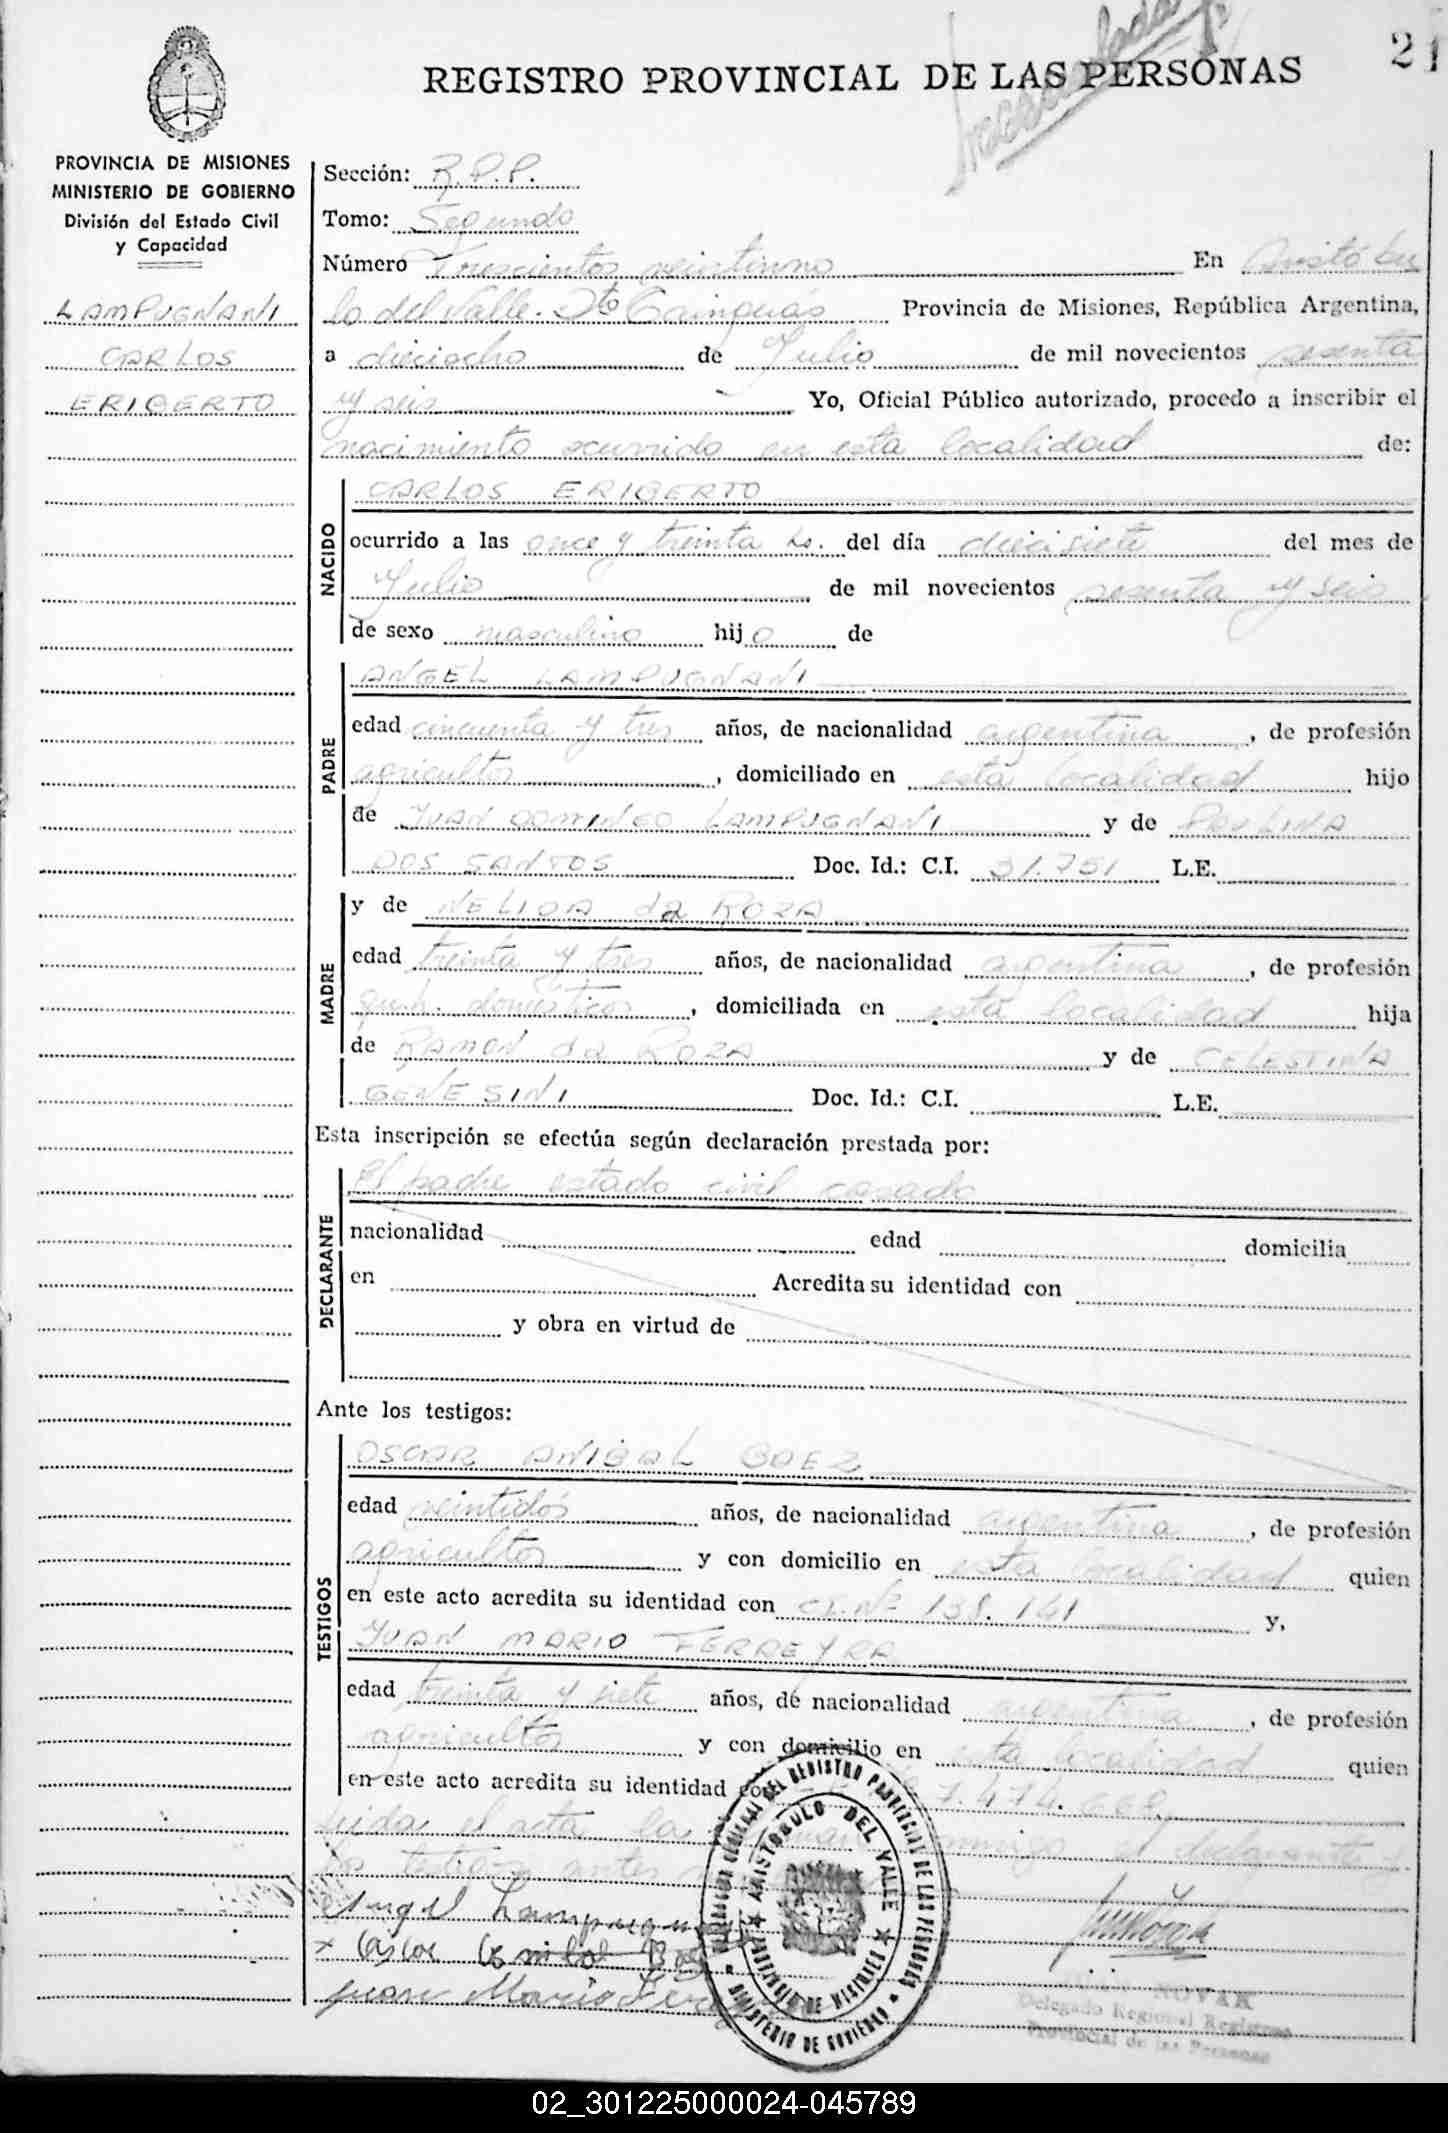 21
REGISTRO PROVINCIAL DE LAS PERSONAS
PROVINCIA DE MISIONES
MINISTERIO DE GOBIERNO
División del Estado Civil
y Capacidad
LAMPUGNANI
CARLOS
ERIBERTO
Sección: R.P.P.
Tomo: Segundo
Número Trescientos veintiuno En Aristóbu
lo del Valle. Dto Cainguás Provincia de Misiones, República Argentina,
a dieciocho de Julio de mil novecientos sesenta
y seis Yo, Oficial Público autorizado, procedo a inscribir el
nacimiento ocurrido en esta localidad de:
NACIDO
CARLOS ERIBERTO
ocurrido a las once y treinta hs. del día diecisiete del mes de
Julio de mil novecientos sesenta y seis
de sexo masculino hijo de
PADRE
ANGEL LAMPUGNANI
edad cincuenta y tres años, de nacionalidad argentina, de profesión
agricultor, domiciliado en esta localidad hijo
de JUAN DOMINGO LAMPUGNANI y de PAULINA
DOS SANTOS Doc. Id.: C.I. 31.751 L.E.
MADRE
y de NELIDA da ROZA
edad treinta y tres años, de nacionalidad argentina, de profesión
queh. domésticos, domiciliada en esta localidad hija
de RAMON da ROZA y de CELESTINA
GENESINI Doc. Id.: C.I. L.E.
Esta inscripción se efectúa según declaración prestada por:
DECLARANTE
El padre estado civil casado
nacionalidad edad domicilia
en Acredita su identidad con
y obra en virtud de
Ante los testigos:
TESTIGOS
OSCAR ANIBAL BAEZ
edad veintidós años, de nacionalidad argentina, de profesión
agricultor y con domicilio en esta localidad quien
en este acto acredita su identidad con CI. Nº 138.141 y,
JUAN MARIO FERREYRA
edad treinta y siete años, de nacionalidad argentina, de profesión
agricultor y con domicilio en esta localidad quien
en este acto acredita su identidad 7.474.
el acta la conmigo el declarante y
los testigos antes
Angel
Juan Mario
REGISTRO PROVINCIAL DE LAS PERSONAS
MINISTERIO DE GOBIERNO
ARISTOBULO DEL VALLE
PROVINCIA DE MISIONES
NOVAK
Delegado Regional Registro
Provincial de las Personas
02_301225000024-045789